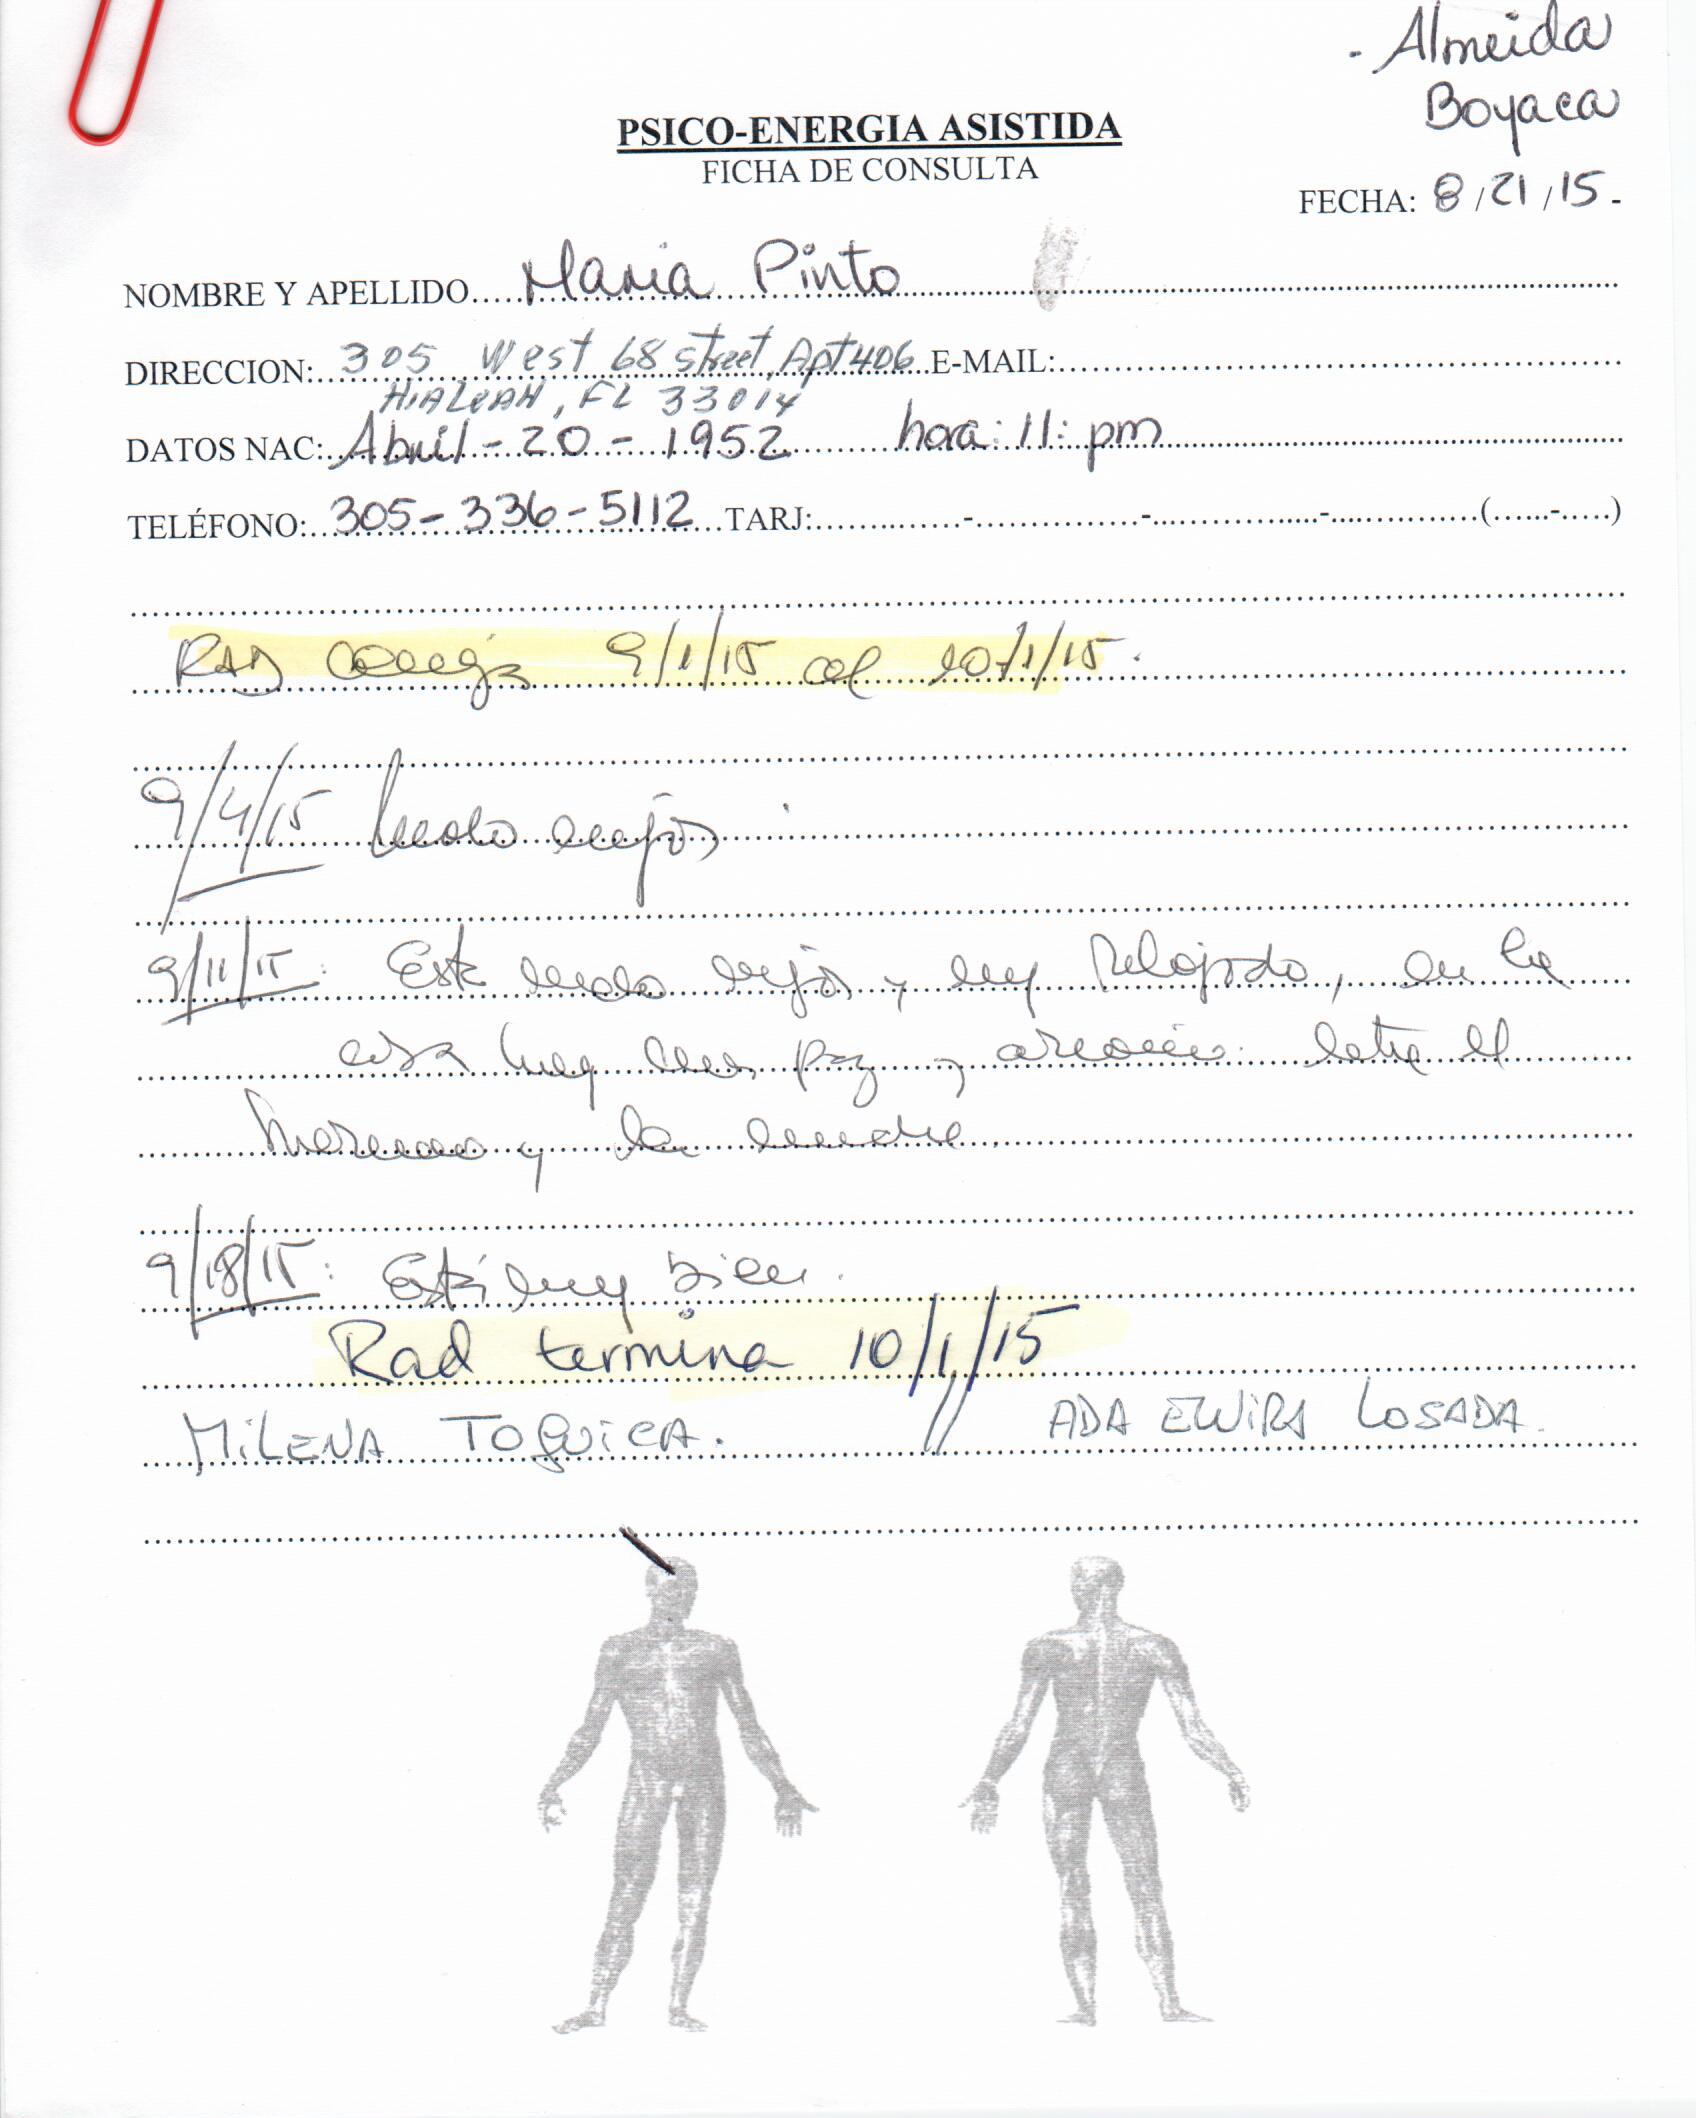 - Almeida
Boyaca
PSICO-ENERGIA ASISTIDA
FICHA DE CONSULTA
FECHA: 8/21/15-
NOMBRE Y APELLIDO Maria Pinto
DIRECCION: 305 West 68 street, Apt 406 E-MAIL:
HIALEAH, FL 33014
DATOS NAC: Abril-20-1952 hora: 11: pm
TELÉFONO: 305-336-5112 TARJ: - - - ( - )
RAD 9/1/15 al 10/1/15.
9/4/15 mejor
9/11/15: Está mejor y muy relajado, en la
casa hay paz y armonía. entre el
hermano y la madre
9/18/15: Está muy bien.
Rad termina 10/1/15
MILENA TOQUICA. // ADA ELVIRA LOSADA.